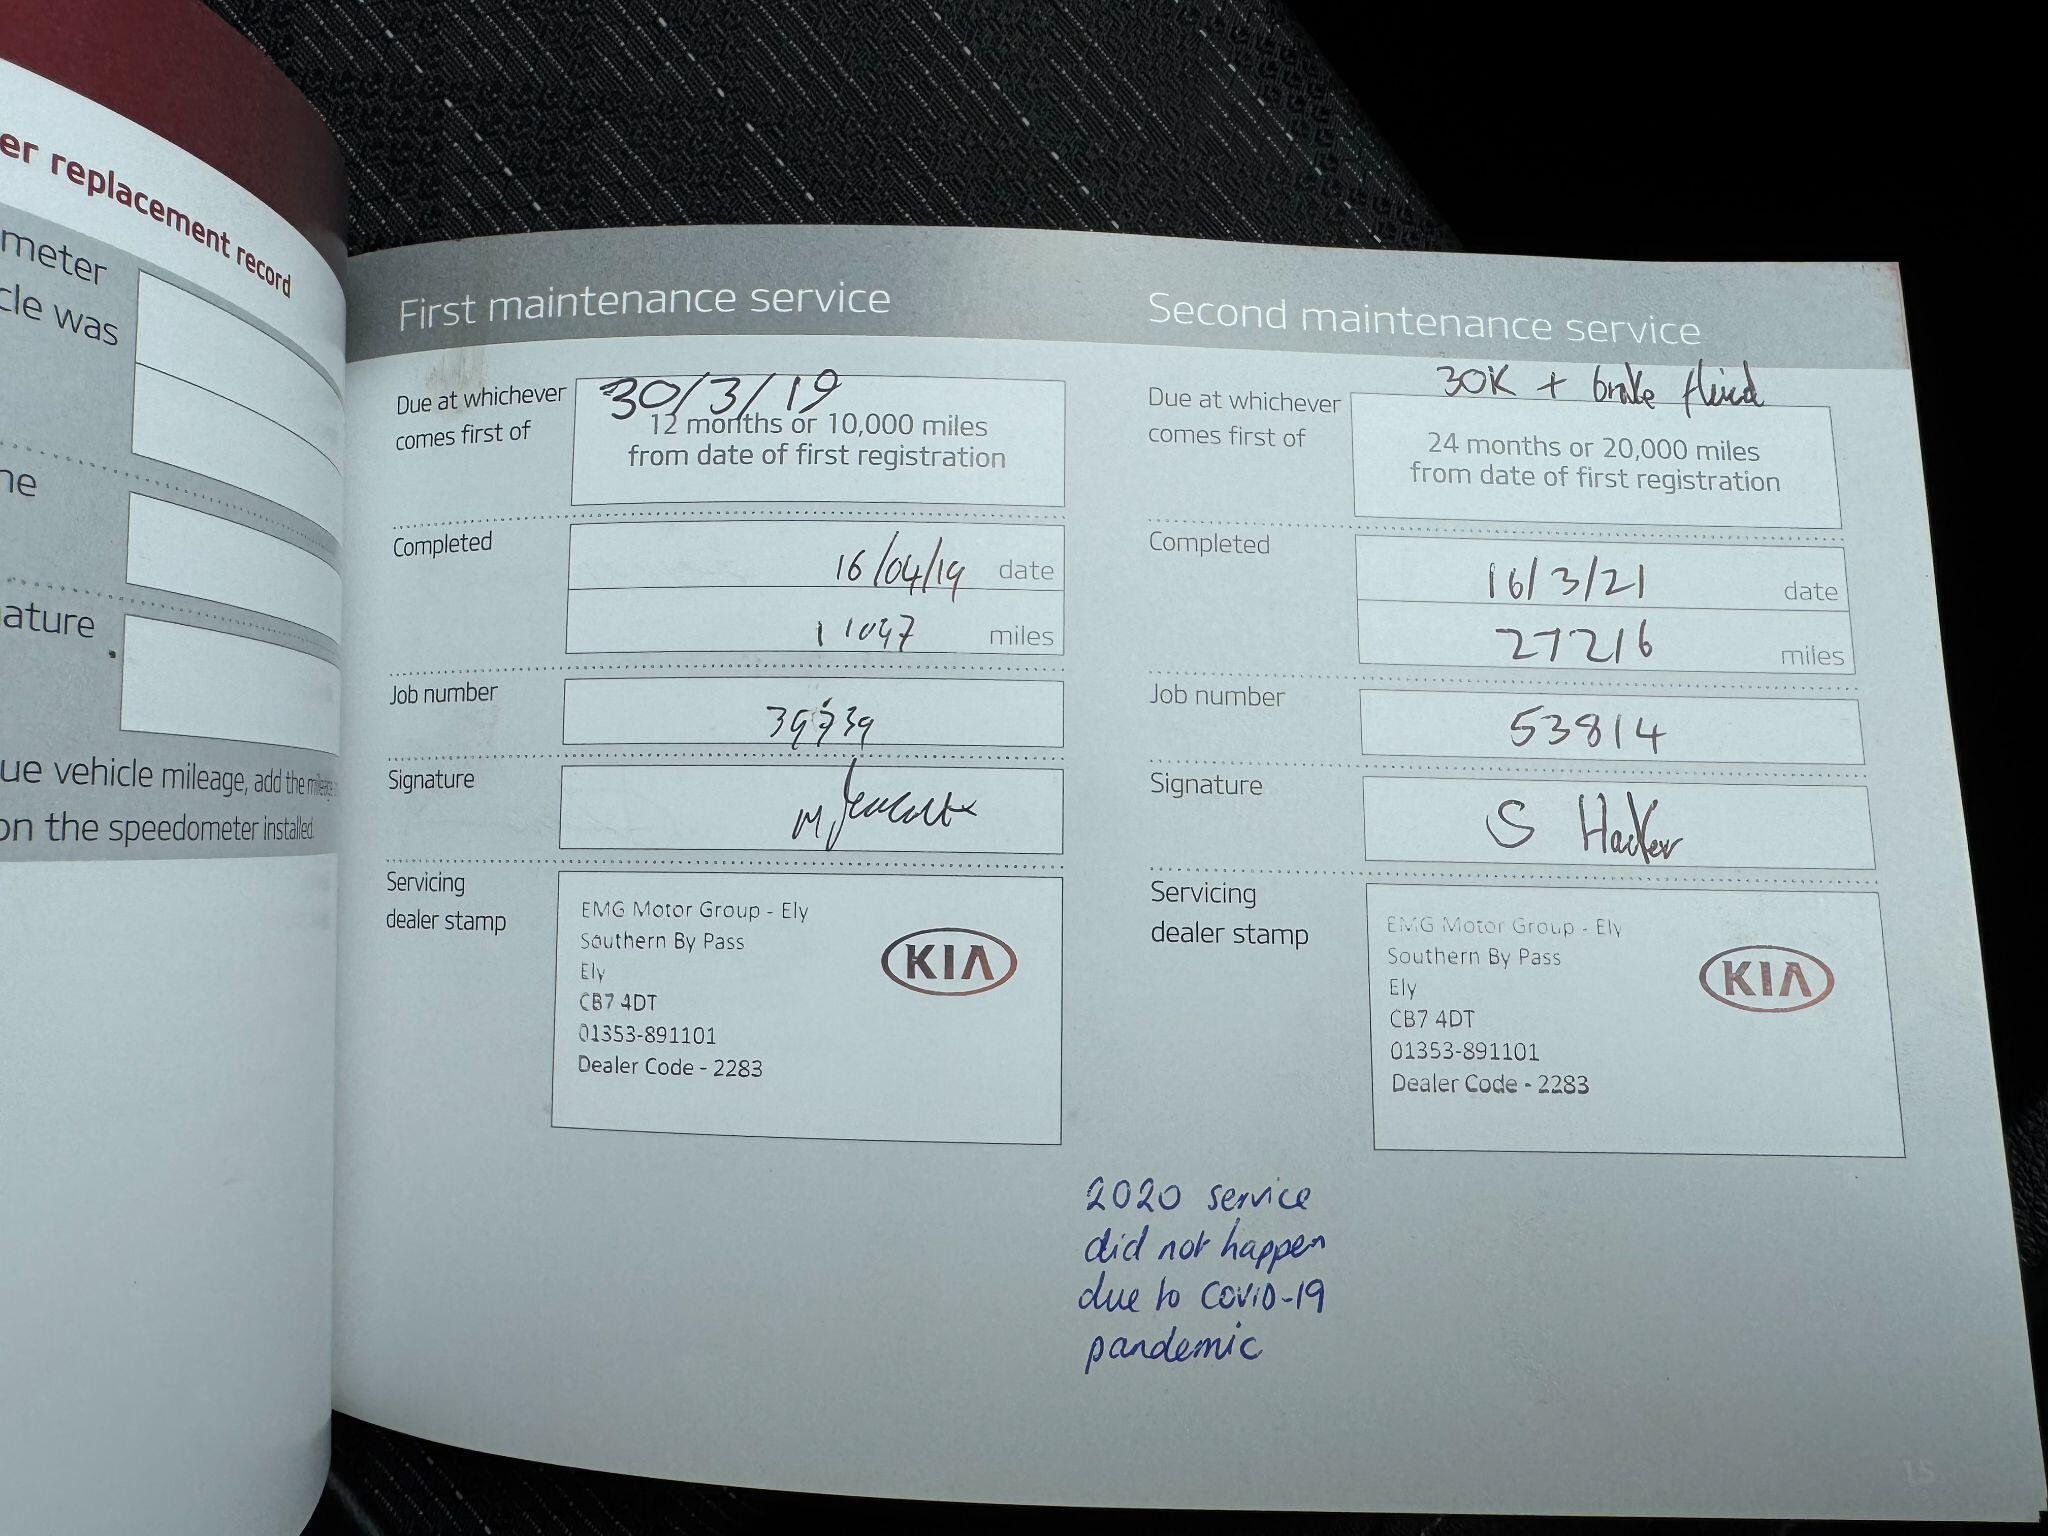 er replacement record
meter
cle was
ne
ature
ue vehicle mileage, add the mileage
on the speedometer installed
First maintenance service
Due at whichever
comes first of
30/3/19
12 months or 10,000 miles
from date of first registration
Completed
16/04/19 date
11047 miles
Job number
Signature
M
Servicing
dealer stamp
EMG Motor Group - Ely
Southern By Pass
Ely
CB7 4DT
01353-891101
Dealer Code - 2283
KIA
Second maintenance service
30K + brake fluid
Due at whichever
comes first of
24 months or 20,000 miles
from date of first registration
Completed
16/3/21 date
27216 miles
Job number
53814
Signature
S
Servicing
dealer stamp
EMG Motor Group - Ely
Southern By Pass
Ely
CB7 4DT
01353-891101
Dealer Code - 2283
KIA
2020 service
did not happen
due to COVID-19
pandemic
15